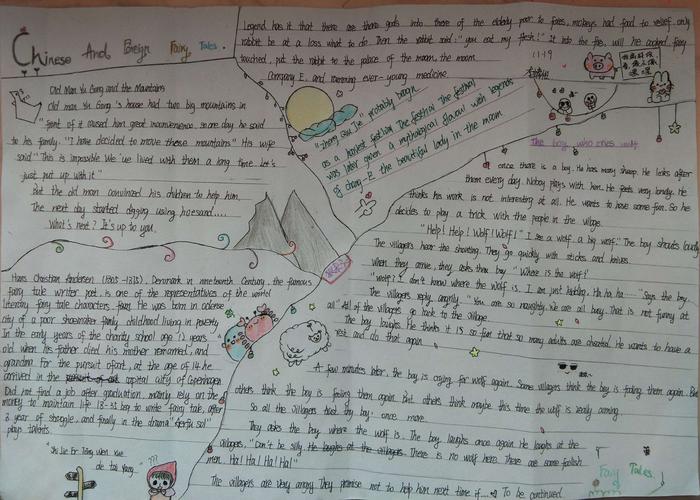 Chinese And Foreign Fairy Tales.
Legend has it that there are three gods into three of the elderly poor to foxes, monkeys had food to relief, only
rabbit be at a loss what to do. Then the rabbit said: "you eat my flesh!" It into the fire, will be cooked, fairy
touched, put the rabbit to the palace of the moon, the moon
Company E. and ramming ever-young medicine.
"zhong qiu jie" probably began
as a harvest festival. The festival The festival
was later given a mythological flavour with legends
of chang-E the beautiful lady in the moon.
Old Man Yu Gong and the Mountains
Old man Yu Gong's house had two big mountains in
front of it caused him great inconvenience, so one day he said
to his family. "I have decided to move these mountains" His wife
said "This is impossible We've lived with them a long time. Let's
just put up with it"
But the old man convinced his children to help him.
The next day started digging using hoes and....
What's next? It's up to you.
The boy who cries wolf
once there is a boy. He has many sheep. He looks after
them every day. Noboy plays with him. He feels very lonely. He
thinks his work is not interesting at all. He wants to have some fun. So he
decides to play a trick with the people in the village.
"Help! Help! Wolf! Wolf!" I see a wolf, a big wolf." The boy shouts loudly
The villagers hear the shouting. They go quickly with sticks and knives.
when they arrive, they asks thou boy. "Where is the wolf?"
"wolf? I don't know where the wolf is. I am just kidding. Ha, ha, ha" "Says the boy.
The villagers reply angrily. "You are so naughty. We are all busy. That is not funny at
all" All of the villagers go back to the village.
The boy laughs. He thinks it is so fun that so many adults are cheated. He wants to have a
rest and do that again.
A few minutes later, the boy is crying for wolf again. Some villagers think the boy is fooling them again. But
others think the boy is fooling them again. But others think maybe this time the wolf is really coming.
So all the villagers trust thy boy, once more.
They asks the boy where the wolf is. The boy laughs once again. He laughs at the
villagers. "Don't be silly. He laughs at the villagers. There is no wolf here. There are some foolish
men. Ha! Ha! Ha! Ha!"
The villagers are very angry. They promise not to help him next time if.... To be continued.
Hans Christian Andersen (1805-1875), Denmark in nineteenth Century, the famous
fairy tale writer poet, is one of the representatives of the world
literary fairy tale characters from. He was born in odense
city of a poor shoemaker family childhood living in poverty
In the early years of the charity school age 12 years
old when his father died his mother remarried, and
grandma for the pursuit of art, at the age of 14 he
arrived in the pursuit of art capital city of Copenhagen
Did not find a job after graduation, mainly rely on the
money to maintain life begin to write fairy tale, after
8 year of struggle, and finally in the drama
plays talents.
Fairy Tales.